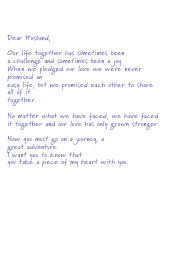 Dear Husband,
Our life together has sometimes been
a challenge and sometimes been a joy.
When we pledged our love we were never
promised an
easy life, but we promised each other to share
all of it
together.
No matter what we have faced, we have faced
it together and our love has only grown stronger
Now you must go on a journey, a
great adventure.
I want you to know that
you take a piece of my heart with you.